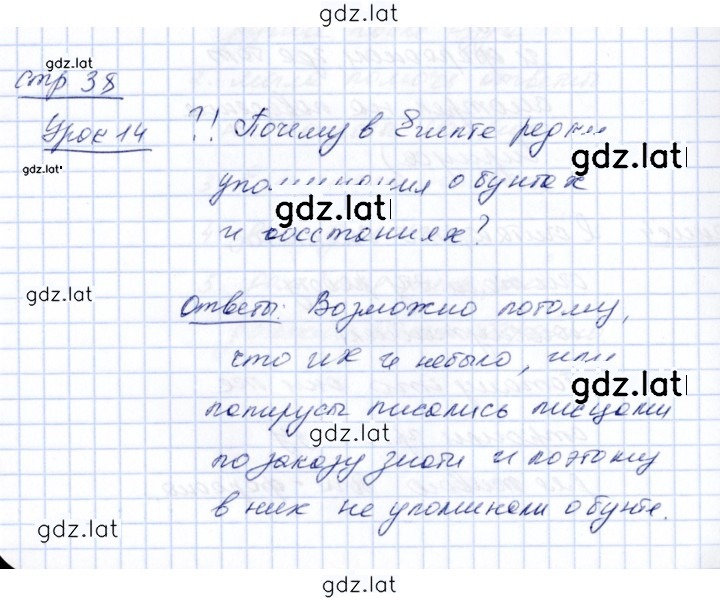 gdz.lat
gdz.lat
стр 38
Урок 14 ?! Почему в Египте редки
gdz.lat
gdz.lat
упоминания о бунтах
gdz.lat
и восстаниях?
gdz.lat
Ответы: Возможно потому,
что их и небыло, или
gdz.lat
папирусы писались писцами
gdz.lat
по заказу знати и поэтому
в них не упоминали о бунте.
gdz.lat
gdz.lat